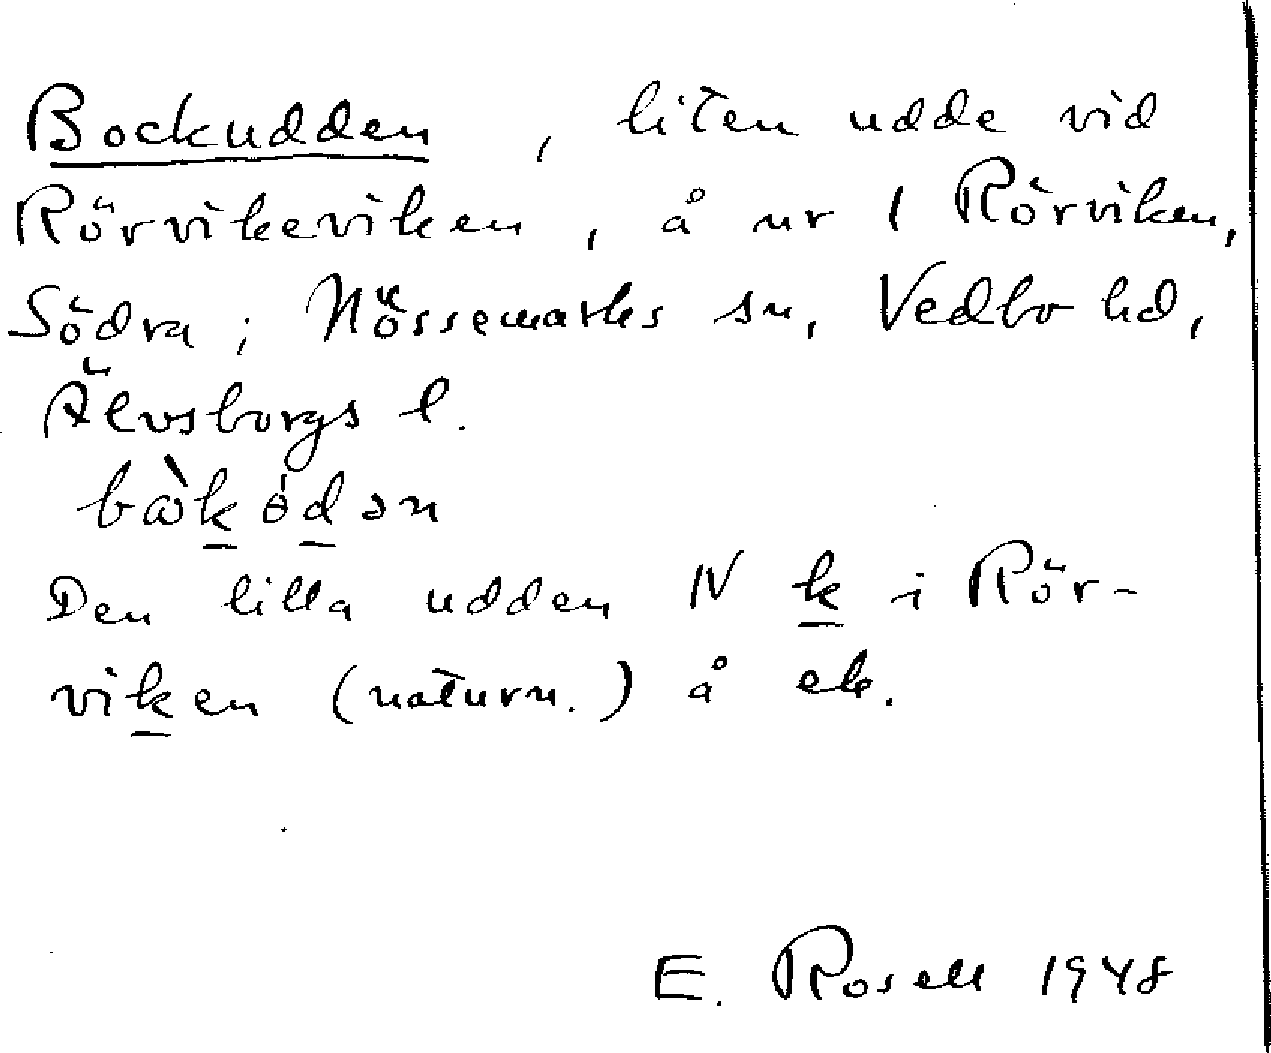 Bockudden, liten udde vid
Rörvikeviken, å nr 1 Rörviken,
Södra; Nössemarks sn, Vedbo hd,
Älvsborgs l.
Den lilla udden N k i Rör-
viken (naturn.) å ek.
E. Rosell 1948